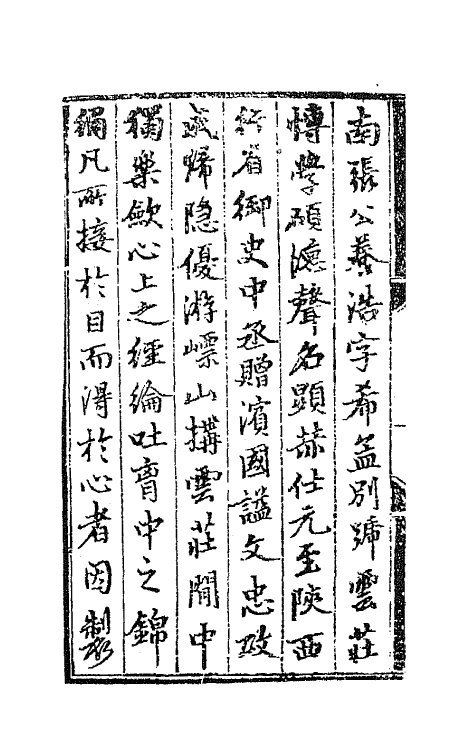 南張公養浩字希孟別號雲莊
博學碩德聲名顯赫仕元至陝西
行省御史中丞贈濱國謚文忠政
成歸隐優游嶫山搆雲莊閒中
獨樂歛心上之經綸吐胷中之錦
繡凡所接於目而得於心者因製